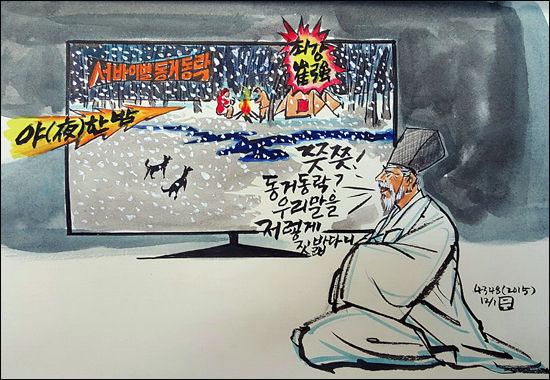 서바이벌 동거동락
최강
崔強
야(夜)한 밤
쯧쯧!
동거동락?
우리말을
저렇게
짓밟다니
4348(2015)
12/1